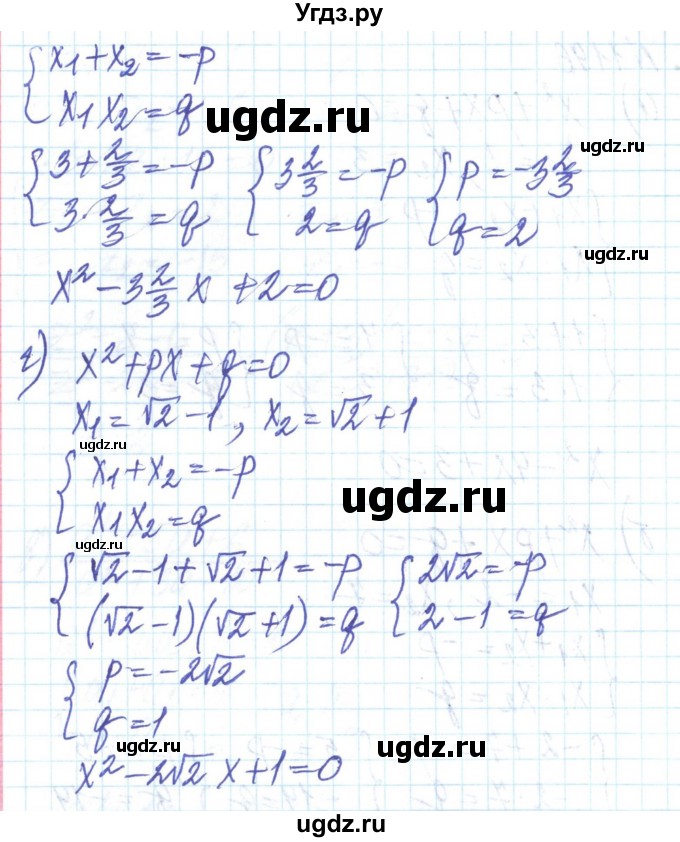 Угдз.ру
{ x₁ + x₂ = -p
{ x₁x₂ = q
ugdz.ru
ugdz.ru
{ 3 + 2/3 = -p { 3 2/3 = -p { p = -3 2/3
{ 3 · 2/3 = q { 2 = q { q = 2
ugdz.ru
x² - 3 2/3 x + 2 = 0
г) x² + px + q = 0
x₁ = √2 - 1, x₂ = √2 + 1
ugdz.ru
{ x₁ + x₂ = -p
{ x₁x₂ = q
ugdz.ru
ugdz.ru
{ √2 - 1 + √2 + 1 = -p { 2√2 = -p
{ (√2 - 1)(√2 + 1) = q { 2 - 1 = q
{ p = -2√2
{ q = 1
ugdz.ru
ugdz.ru
x² - 2√2 x + 1 = 0
ugdz.ru